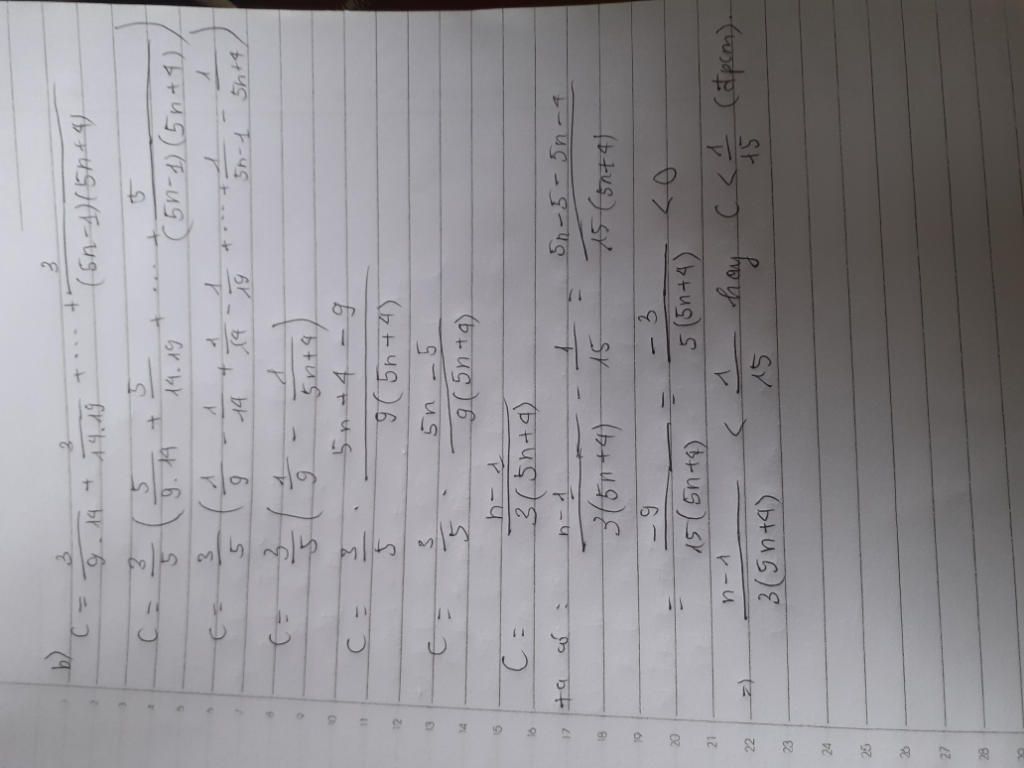 b)
C = 3/(9.14) + 3/(14.19) + .... + 3/((5n-1)(5n+4))
C = 3/5 ( 5/(9.14) + 5/(14.19) + .... + 5/((5n-1)(5n+4)) )
C = 3/5 ( 1/9 - 1/14 + 1/14 - 1/19 + .... + 1/(5n-1) - 1/(5n+4) )
C = 3/5 ( 1/9 - 1/(5n+4) )
C = 3/5 . (5n+4-9)/(9(5n+4))
C = 3/5 . (5n-5)/(9(5n+4))
C = (n-1)/(3(5n+4))
+a có : (n-1)/(3(5n+4)) - 1/15 = (5n-5-5n-4)/(15(5n+4))
= -9/(15(5n+4)) = -3/(5(5n+4)) < 0
=) (n-1)/(3(5n+4)) < 1/15 hay C < 1/15 (đpcm).
1
2
3
4
5
6
7
8
9
10
11
12
13
14
15
16
17
18
19
20
21
22
23
24
25
26
27
28